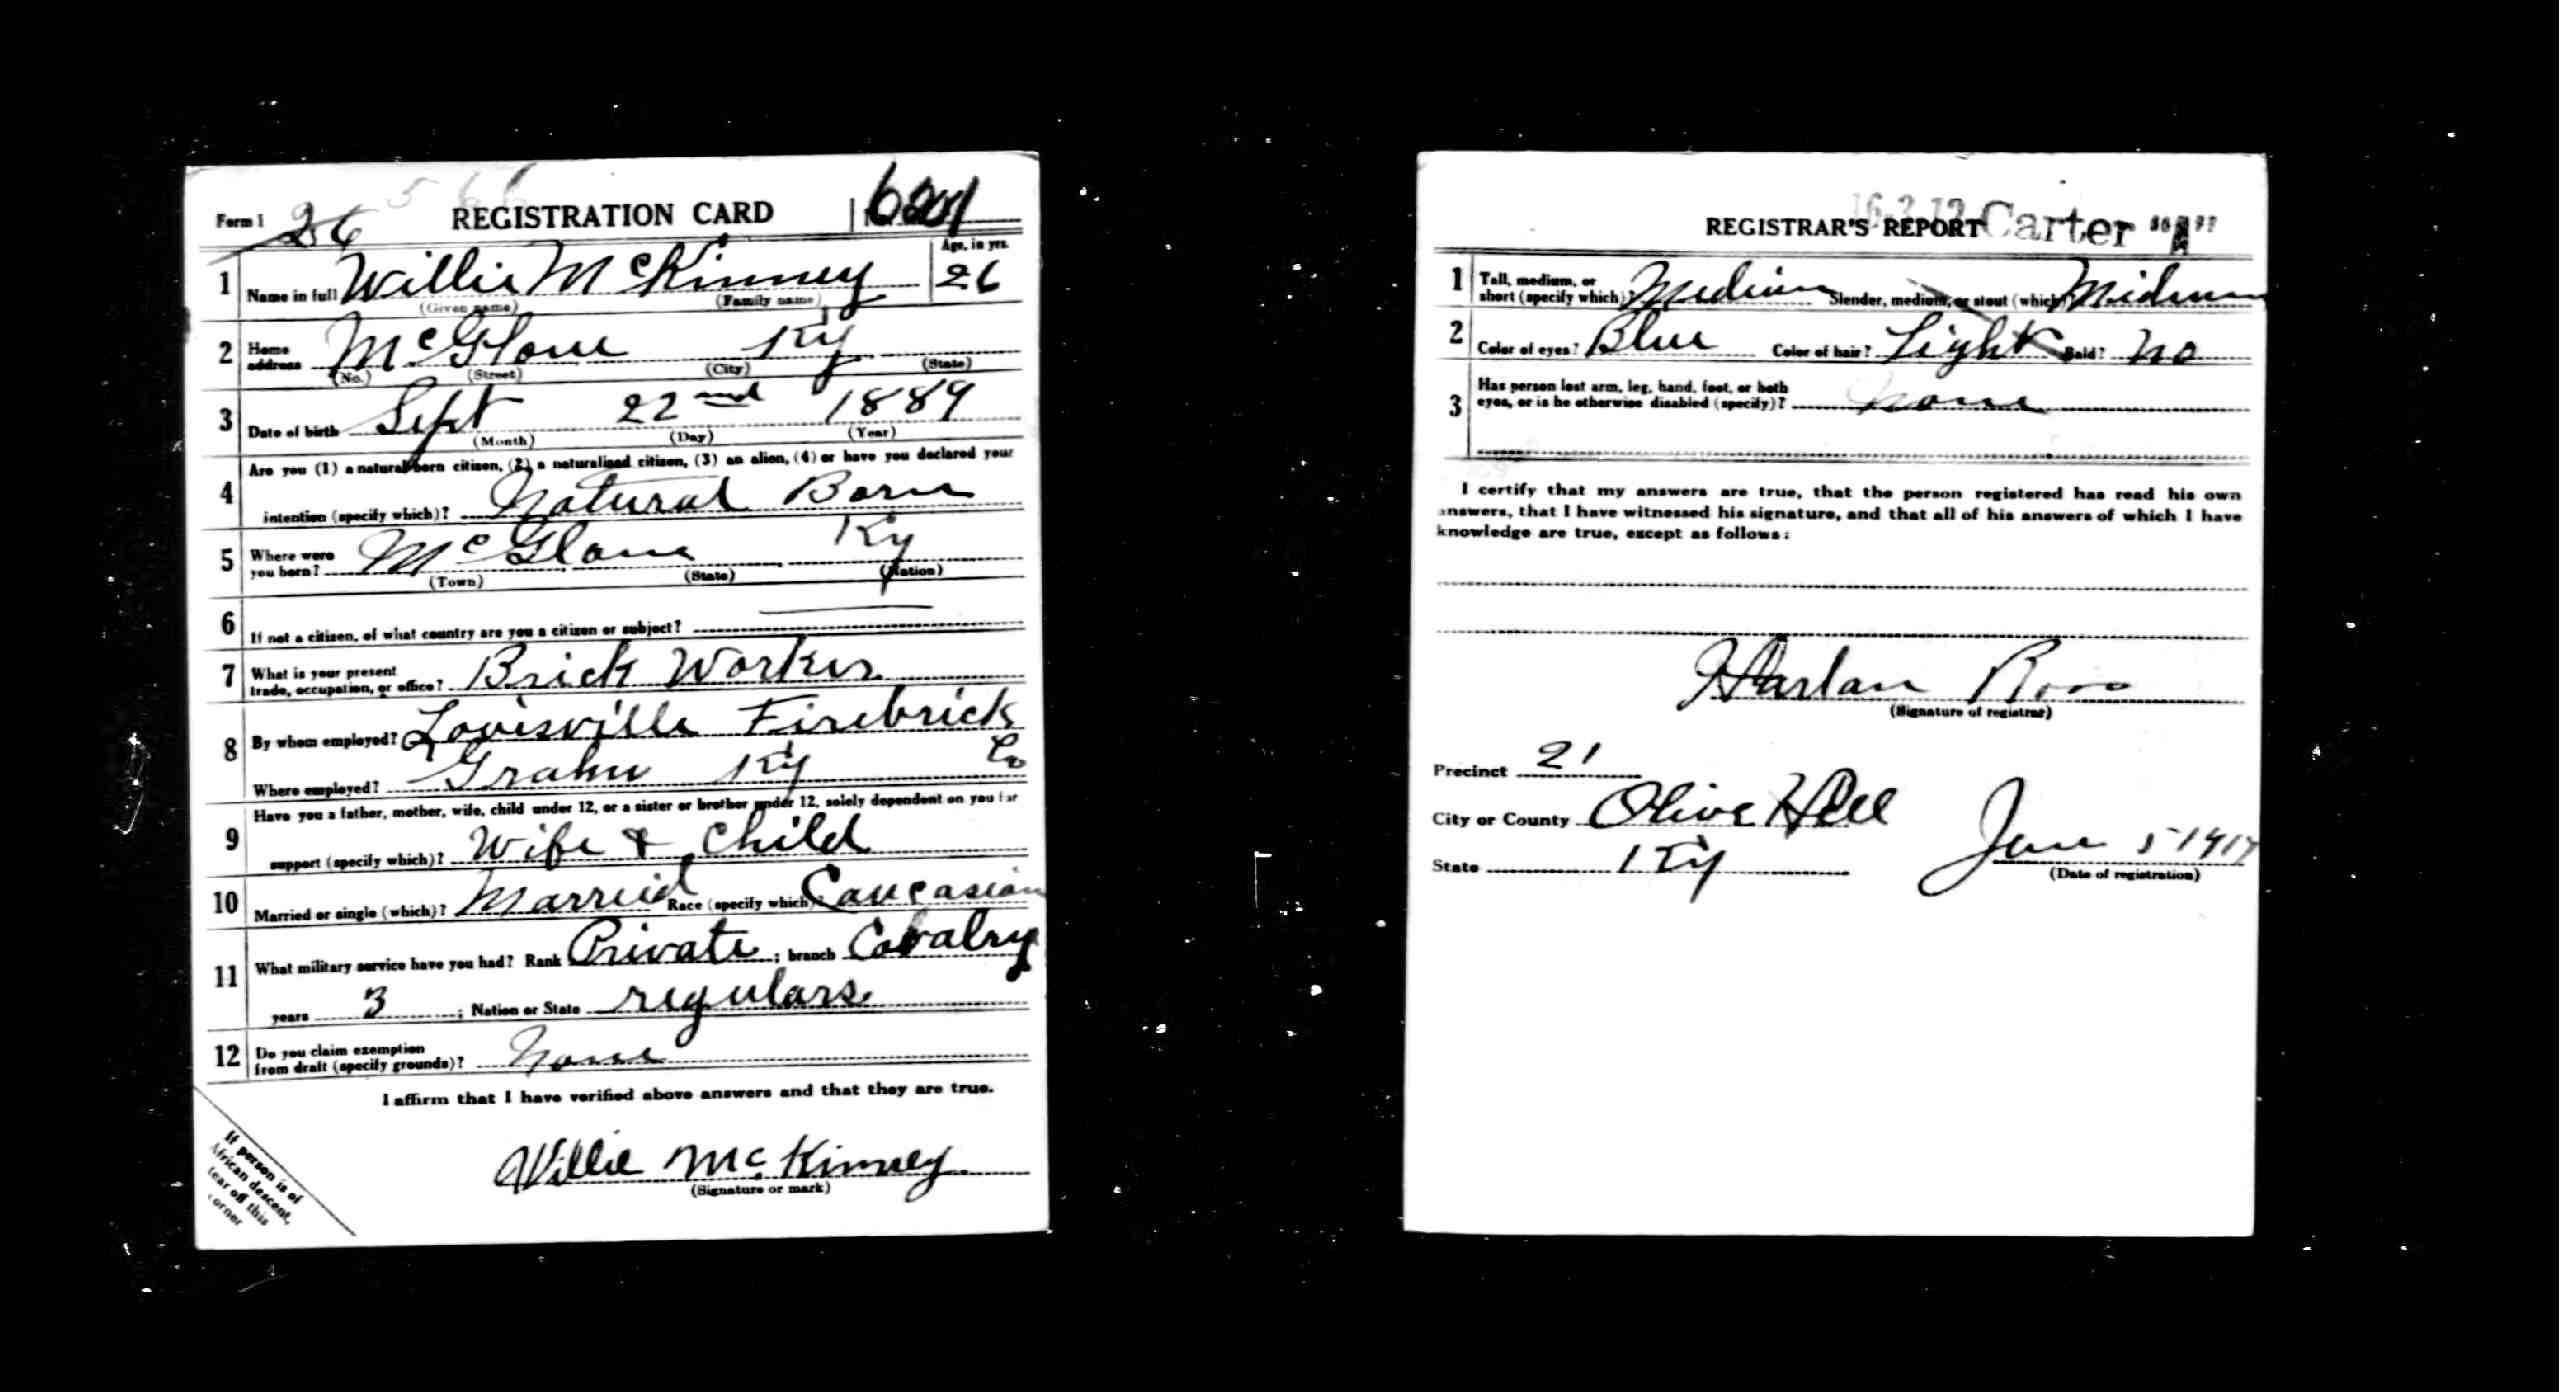 Form 1 26 REGISTRATION CARD
1 Name in full Willie McKinney Age, in yrs. 26
(Given name) (Family name)
2 Home address McGlone Ky
(No.) (Street) (City) (State)
3 Date of birth Sept 22nd 1889
(Month) (Day) (Year)
4 Are you (1) a natural born citizen, (2) a naturalized citizen, (3) an alien, (4) or have you declared your
intention (specify which)? Natural Born
5 Where were you born? McGlone Ky
(Town) (State) (Nation)
6 If not a citizen, of what country are you a citizen or subject?
7 What is your present trade, occupation, or office? Brick Worker
8 By whom employed? Louisville Firebrick Co
Where employed? Grahn Ky
9 Have you a father, mother, wife, child under 12, or a sister or brother under 12, solely dependent on you for
support (specify which)? Wife & Child
10 Married or single (which)? Married Race (specify which)? Caucasian
11 What military service have you had? Rank Private ; branch Cavalry
years 3 ; Nation or State regulars
12 Do you claim exemption
from draft (specify grounds)? None
I affirm that I have verified above answers and that they are true.
Willie McKinney
(Signature or mark)
If person is of
African descent,
tear off this
corner
REGISTRAR'S REPORT Carter
1 Tall, medium, or
short (specify which)? Medium Slender, medium, or stout (which)? Midium
2 Color of eyes? Blue Color of hair? Light Bald? no
3 Has person lost arm, leg, hand, foot, or both
eyes, or is he otherwise disabled (specify)? None
I certify that my answers are true, that the person registered has read his own
answers, that I have witnessed his signature, and that all of his answers of which I have
knowledge are true, except as follows:
Harlan Rose
(Signature of registrar)
Precinct 21
City or County Olive Hill
State Ky June 5 1917
(Date of registration)